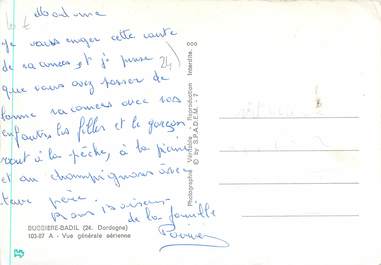 Madame
je vous envoie cette carte
de vacances et je pense
que vous avez passer de
bonne vacances avec vos
enfants les filles et le garçon
sont à la pêche, à la
et au champignons avec
leur père.
Bons Baisers
de la famille
24
BUSSIERE-BADIL (24. Dordogne)
103-87 A - Vue générale aérienne
Photographie Véritable - Reproduction Interdite.
© by S.P.A.D.E.M. - 7